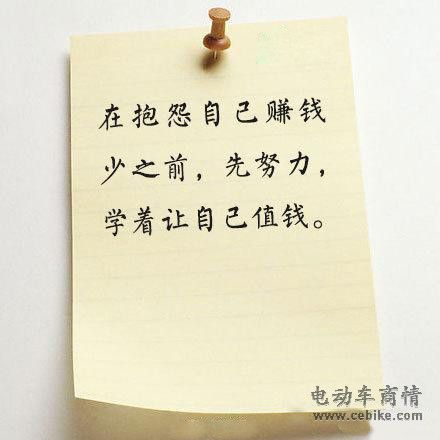 在抱怨自己赚钱
少之前，先努力，
学着让自己值钱。
电动车商情
www.cebike.com